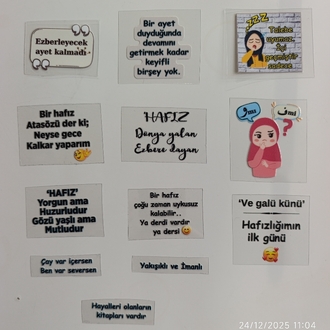 Ezberleyecek
ayet kalmadı
Bir ayet
duyduğunda
devamını
getirmek kadar
keyifli
birşey yok.
zzz
Talebe
uyumaz,
İyi
geçmiştir
sadece
Bir hafız
Atasözü der ki;
Neyse gece
Kalkar yaparım
HAFIZ
Dünya yalan
Ezbere dayan
'HAFIZ'
Yorgun ama
Huzurludur
Gözü yaşlı ama
Mutludur
Bir hafız
çoğu zaman uykusuz
kalabilir..
Ya derdi vardır
ya dersi
'Ve galü künü'
Hafızlığımın
ilk günü
Çay var içersen
Ben var seversen
Yakışıklı ve İmanlı
Hayalleri olanların
kitapları vardır
24/12/2025 11:04